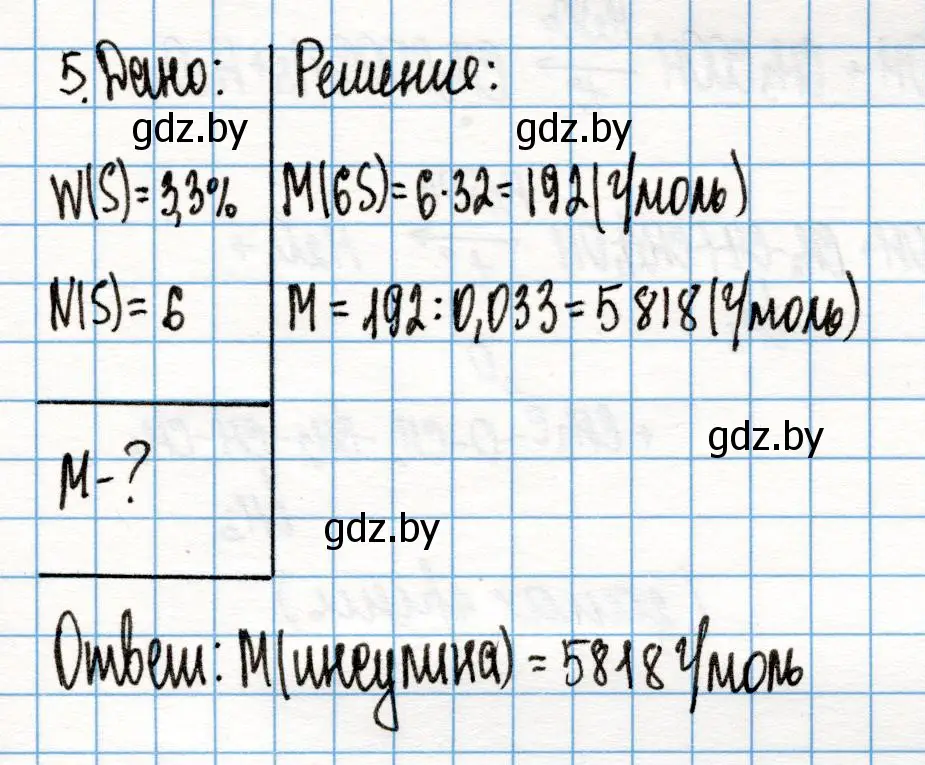 5. Дано:
Решение:
gdz.by
gdz.by
W(S)=3,3%
M(6S)=6·32=192(г/моль)
N(S)=6
M=192:0,033=5818(г/моль)
gdz.by
M-?
gdz.by
Ответ: M(инсулина)=5818 г/моль